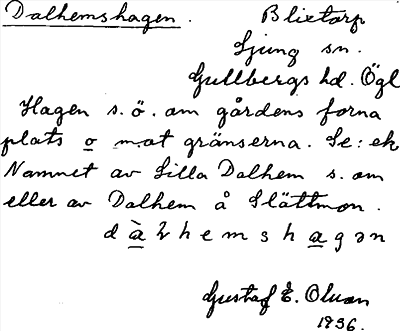 Dalhemshagen. Blixtorp
Ljung sn.
Gullbergs hd. Ögl
Hagen s.ö. om gårdens forna
plats o mot gränserna. Se: ek
Namnet av Lilla Dalhem s. om
eller av Dalhem å Slättmon.
dàlhemshagən
Gustaf E. Olson
1936.